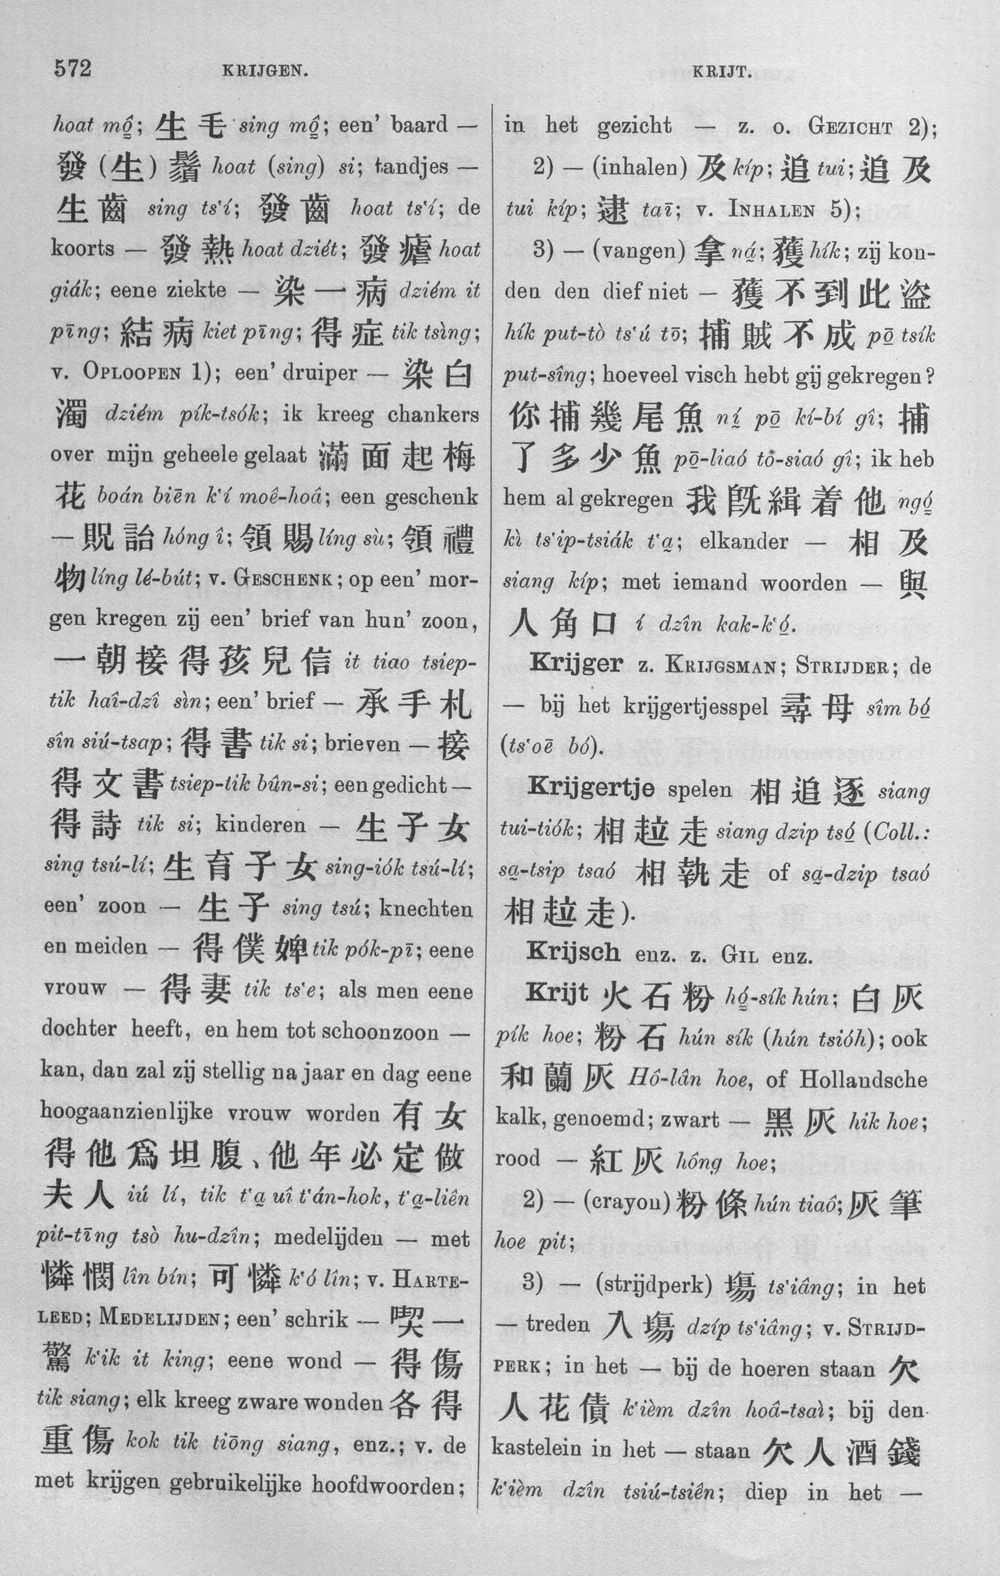 572 KRIJGEN. KRIJT.
hoat mô̤; 生毛 sing mô̤; een' baard —
發(生)鬚 hoat (sing) si; tandjes —
生齒 sing ts'í; 發齒 hoat ts'í; de
koorts — 發熱 hoat dziét; 發瘧 hoat
giák; eene ziekte — 染一病 dziém it
pīng; 結病 kiet pīng; 得症 tik tsìng;
v. OPLOOPEN 1); een' druiper — 染白
濁 dziém pík-tsók; ik kreeg chankers
over mijn geheele gelaat 滿面起梅
花 boán biēn k'í moê-hoâ; een geschenk
— 貺詒 hóng î; 領賜 líng sù; 領禮
物 líng lé-bút; v. GESCHENK; op een' mor-
gen kregen zij een' brief van hun' zoon,
一朝接得孩兒信 it tiao tsiep-
tik haî-dzî sìn; een' brief — 承手札
sîn siú-tsap; 得書 tik si; brieven — 接
得文書 tsiep-tik bûn-si; een gedicht —
得詩 tik si; kinderen — 生子女
sing tsú-lí; 生育子女 sing-iók tsú-lí;
een' zoon — 生子 sing tsú; knechten
en meiden — 得僕婢 tik pók-pī; eene
vrouw — 得妻 tik ts'e; als men eene
dochter heeft, en hem tot schoonzoon —
kan, dan zal zij stellig na jaar en dag eene
hoogaanzienlijke vrouw worden 有女
得他爲坦腹、他年必定做
夫人 iú lí, tik t'a̤ uî t'án-hok, t'a̤-liên
pit-tīng tsò hu-dzîn; medelijden — met
憐憫 lîn bín; 可憐 k'ó lîn; v. HARTE-
LEED; MEDELIJDEN; een' schrik — 喫一
驚 k'ik it king; eene wond — 得傷
tik siang; elk kreeg zware wonden 各得
重傷 kok tik tiōng siang, enz.; v. de
met krijgen gebruikelijke hoofdwoorden;
in het gezicht — z. o. GEZICHT 2);
2) — (inhalen) 及 kíp; 追 tui; 追及
tui kíp; 逮 taī; v. INHALEN 5);
3) — (vangen) 拿 ná̤; 獲 hík; zij kon-
den den dief niet — 獲不到此盜
hík put-tò ts'ú tō; 捕賊不成 pō̤ tsík
put-sîng; hoeveel visch hebt gij gekregen?
你捕幾尾魚 ní̤ pō̤ kí-bí gî; 捕
了多少魚 pō̤-liaó tô-siaó gî; ik heb
hem al gekregen 我旣緝着他 ngó̤
kì ts'ip-tsiák t'a̤; elkander — 相及
siang kíp; met iemand woorden — 與
人角口 í dzîn kak-k'ó̤.
Krijger z. KRIJGSMAN; STRIJDER; de
— bij het krijgertjesspel 尋母 sîm bó̤
(ts'oē bó).
Krijgertje spelen 相追逐 siang
tui-tiók; 相趁走 siang dzip tsó̤ (Coll.:
sa̤-tsip tsaó 相執走 of sa̤-dzip tsaó
相趁走).
Krijsch enz. z. GIL enz.
Krijt 火石粉 hó̤-sík hún; 白灰
pík hoe; 粉石 hún sík (hún tsióh); ook
和蘭灰 Hô-lân hoe, of Hollandsche
kalk, genoemd; zwart — 黑灰 hik hoe;
rood — 紅灰 hông hoe;
2) — (crayon) 粉條 hún tiaô; 灰筆
hoe pit;
3) — (strijdperk) 塲 ts'iâng; in het
— treden 入塲 dzíp ts'iâng; v. STRIJD-
PERK; in het — bij de hoeren staan 欠
人花債 k'ièm dzîn hoâ-tsaì; bij den
kastelein in het — staan 欠人酒錢
k'ièm dzîn tsiú-tsiên; diep in het —